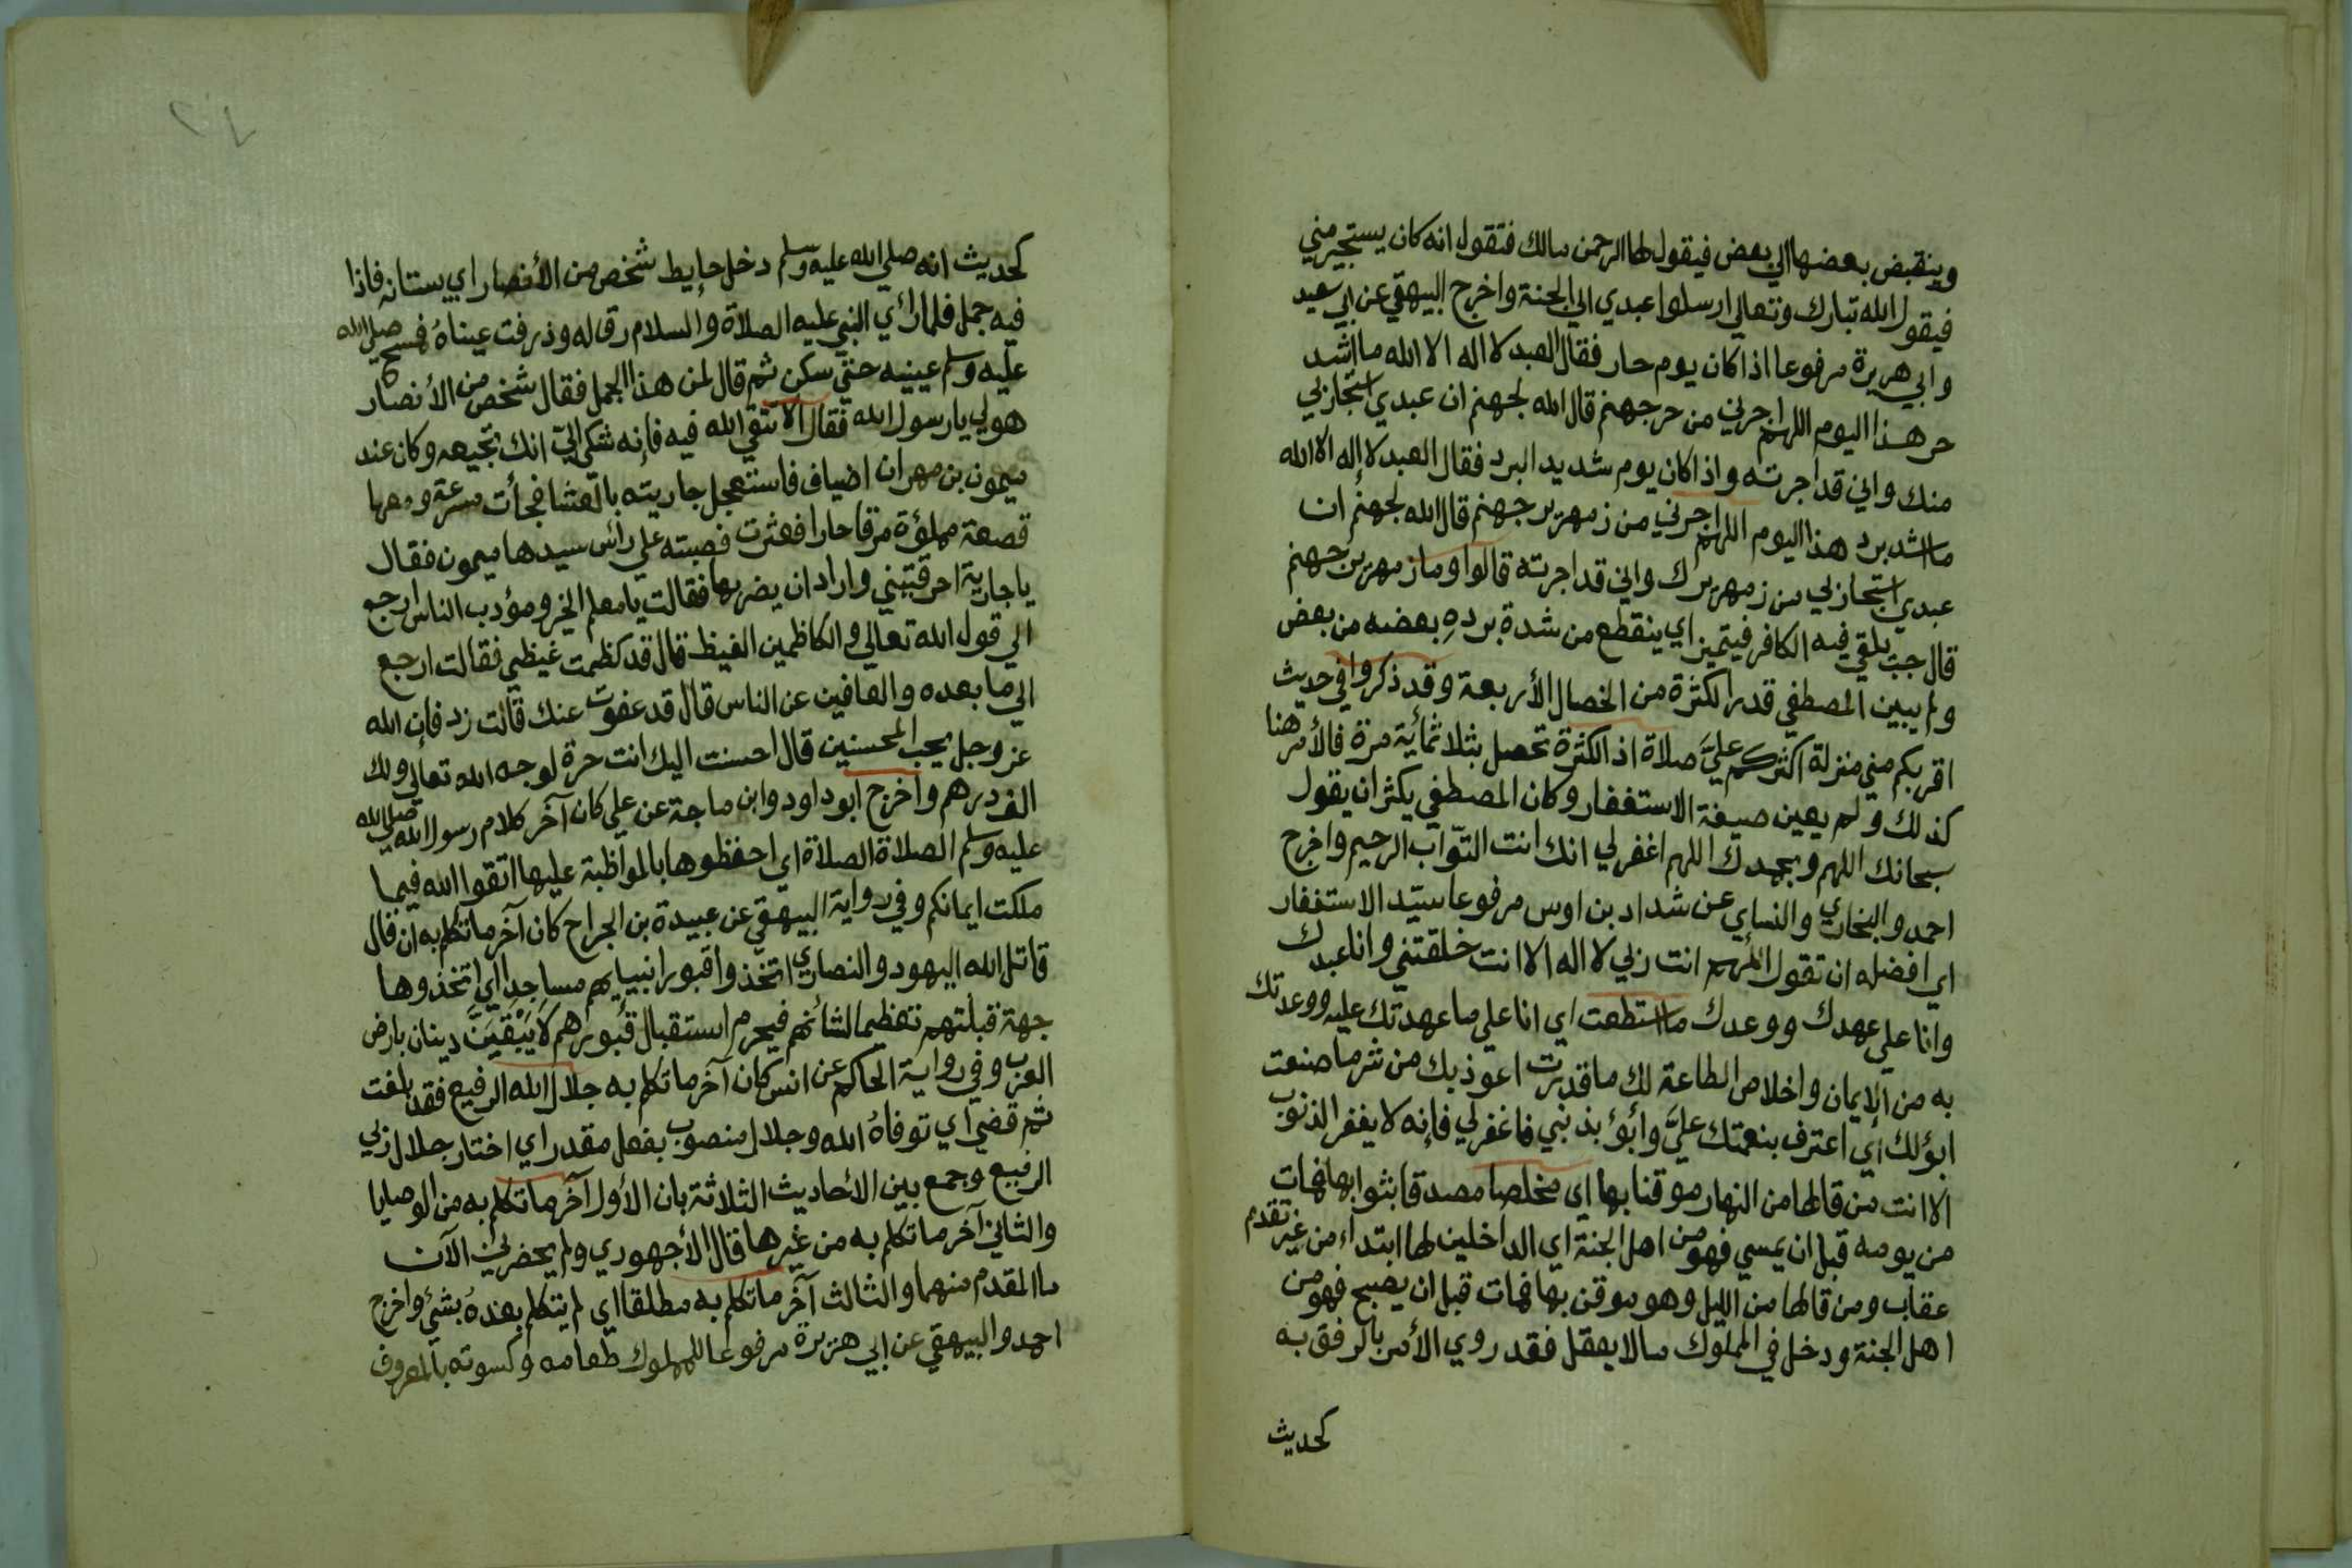 وينقبض بعضها الي بعض فيقول لها الرحمن مالك فتقول انه كان يستجير مني
فيقول الله تبارك وتعالي ارسلوا عبدي الي الجنة واخرج البيهقي عن ابي سعيد
وابي هريرة مرفوعا اذا كان يوم حار فقال العبد لا اله الا الله ما اشد
حر هذا اليوم اللهم اجرني من حر جهنم قال الله لجهنم ان عبدي استجار بي
منك واني قد اجرته واذا كان يوم شديد البرد فقال العبد لا إله الا الله
ما اشد برد هذا اليوم اللهم اجرني من زمهرير جهنم قال الله لجهنم ان
عبدي استجار بي من زمهريرك واني قد اجرته قالوا وما زمهرير جهنم
قال جب يلقي فيه الكافر فيتميز اي ينقطع من شدة برده بعضه من بعض
ولم يبين المصطفي قدر الكثرة من الخصال الأربعة وقد ذكروا في حديث
اقربكم مني منزلة اكثركم عليَّ صلاة اذ الكثرة تحصل بثلاثمأية مرة فالأمر هنا
كذلك ولم يعين صيغة الاستغفار وكان المصطفي يكثر ان يقول
سبحانك اللهم وبحمدك اللهم اغفر لي انك انت التوّاب الرحيم واخرج
احمد والبخاري والنساي عن شداد بن اوس مرفوعا سيّد الاستغفار
اي افضله ان تقول اللهم انت ربي لا اله الا انت خلقتني وانا عبدك
وانا علي عهدك ووعدك ما استطعت اي انا علي ما عهدتك عليه ووعدتك
به من الايمان واخلاص الطاعة لك ما قدرت اعوذ بك من شر ما صنعت
ابؤ لك أي اعترف بنعمتك عليَّ وأبؤ بذنبي فاغفر لي فإنه لا يغفر الذنوب
الا انت من قالها من النهار موقنا بها اي مخلصا مصدقا بثوابها فمات
من يومه قبل ان يمسي فهو من اهل الجنة اي الداخلين لها ابتداء من غير تقدم
عقاب ومن قالها من الليل وهو موقن بها فمات قبل ان يصبح فهو من
اهل الجنة ودخل في المملوك مالا يعقل فقد روي الأمر بالرفق به
كحديث
كحديث انه صلي الله عليه وسلم دخل حايط شخص من الأنصار اي بستانه فاذا
فيه جمل فلما رأي النبي عليه الصلاة والسلام رق له وذرفت عيناهُ فمسح صلي الله
عليه وسلم عينيه حتي سكن ثم قال لمن هذا الجمل فقال شخص من الأنصار
هو لي يا رسول الله فقال الا تتقي الله فيه فإنه شكي إليّ انك تجيعه وكان عند
ميمون بن مهران اضياف فاستعجل جاريته بالعشا فجأت مسرعة ومعها
قصعة مملؤة مرقا حارا فعثرت فصبته علي رأس سيدها ميمون فقال
يا جارية احرقتيني واراد ان يضربها فقالت يا معلم الخير ومؤدب الناس ارجع
الي قول الله تعالي والكاظمين الغيظ قال قد كظمت غيظي فقالت ارجع
الي ما بعده والعافين عن الناس قال قد عفوت عنك قالت زد فإن الله
عز وجل يحب المحسنين قال احسنت اليك انت حرة لوجه الله تعالي ولك
الف درهم واخرج ابو داود وابن ماجة عن علي كان آخر كلام رسول الله صلي الله
عليه وسلم الصلاة الصلاة اي احفظوها بالمواظبة عليها اتقوا الله فيما
ملكت ايمانكم وفي رواية البيهقي عن عبيدة بن الجراح كان آخر ما تكلم به ان قال
قاتل الله اليهود والنصاري اتخذوا قبور انبيايهم مساجد اي اتخذوها
جهة قبلتهم تعظيما لشأنهم فيحرم استقبال قبورهم لا يَبْقَيَنَّ دينان بارض
العرب وفي رواية الحاكم عن انس كان آخر ما تكلم به جلال الله الرفيع فقد بلغت
ثم قضي اي توفاهُ الله وجلال منصوب بفعل مقدر اي اختار جلال ربي
الرفيع وجمع بين الأحاديث الثلاثة بان الأول آخر ما تكلم به من الوصايا
والثاني آخر ما تكلم به من غيرها قال الأجهوري ولم يحضرني الآن
ما المقدم منهما والثالث آخر ما تكلم به مطلقا اي لم يتكلم بعدهُ بشئ واخرج
احمد والبيهقي عن ابي هريرة مرفوعا للمملوك طعامه وكسوته بالمعروف